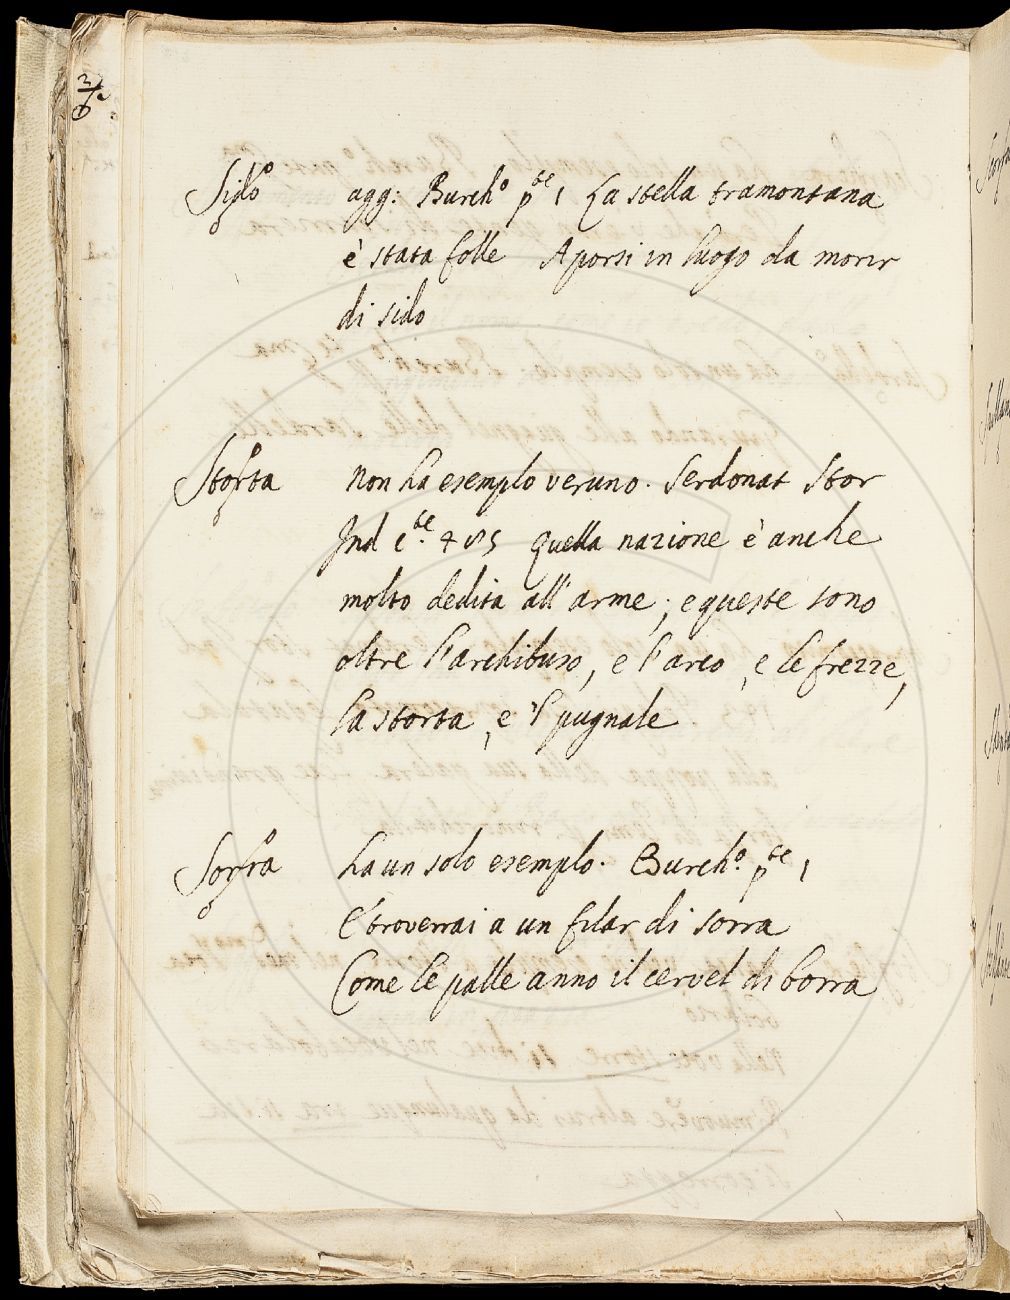 Sido agg: Burch.º p.te 1 La stella tramontana
è stata folle A porsi in luogo da morir
di sido
Storta non ha esemplo veruno. Serdonat Stor
Ind c.te 405 quella nazione è anche
molto dedita all'arme; e queste sono
oltre l'archibuso, e l'arco, e le frezze,
la storta, e 'l pugnale
Sorra ha un solo esemplo. Burch.º p.te 1
E troverrai a un filar di sorra
Come le palle anno il cervel di borra